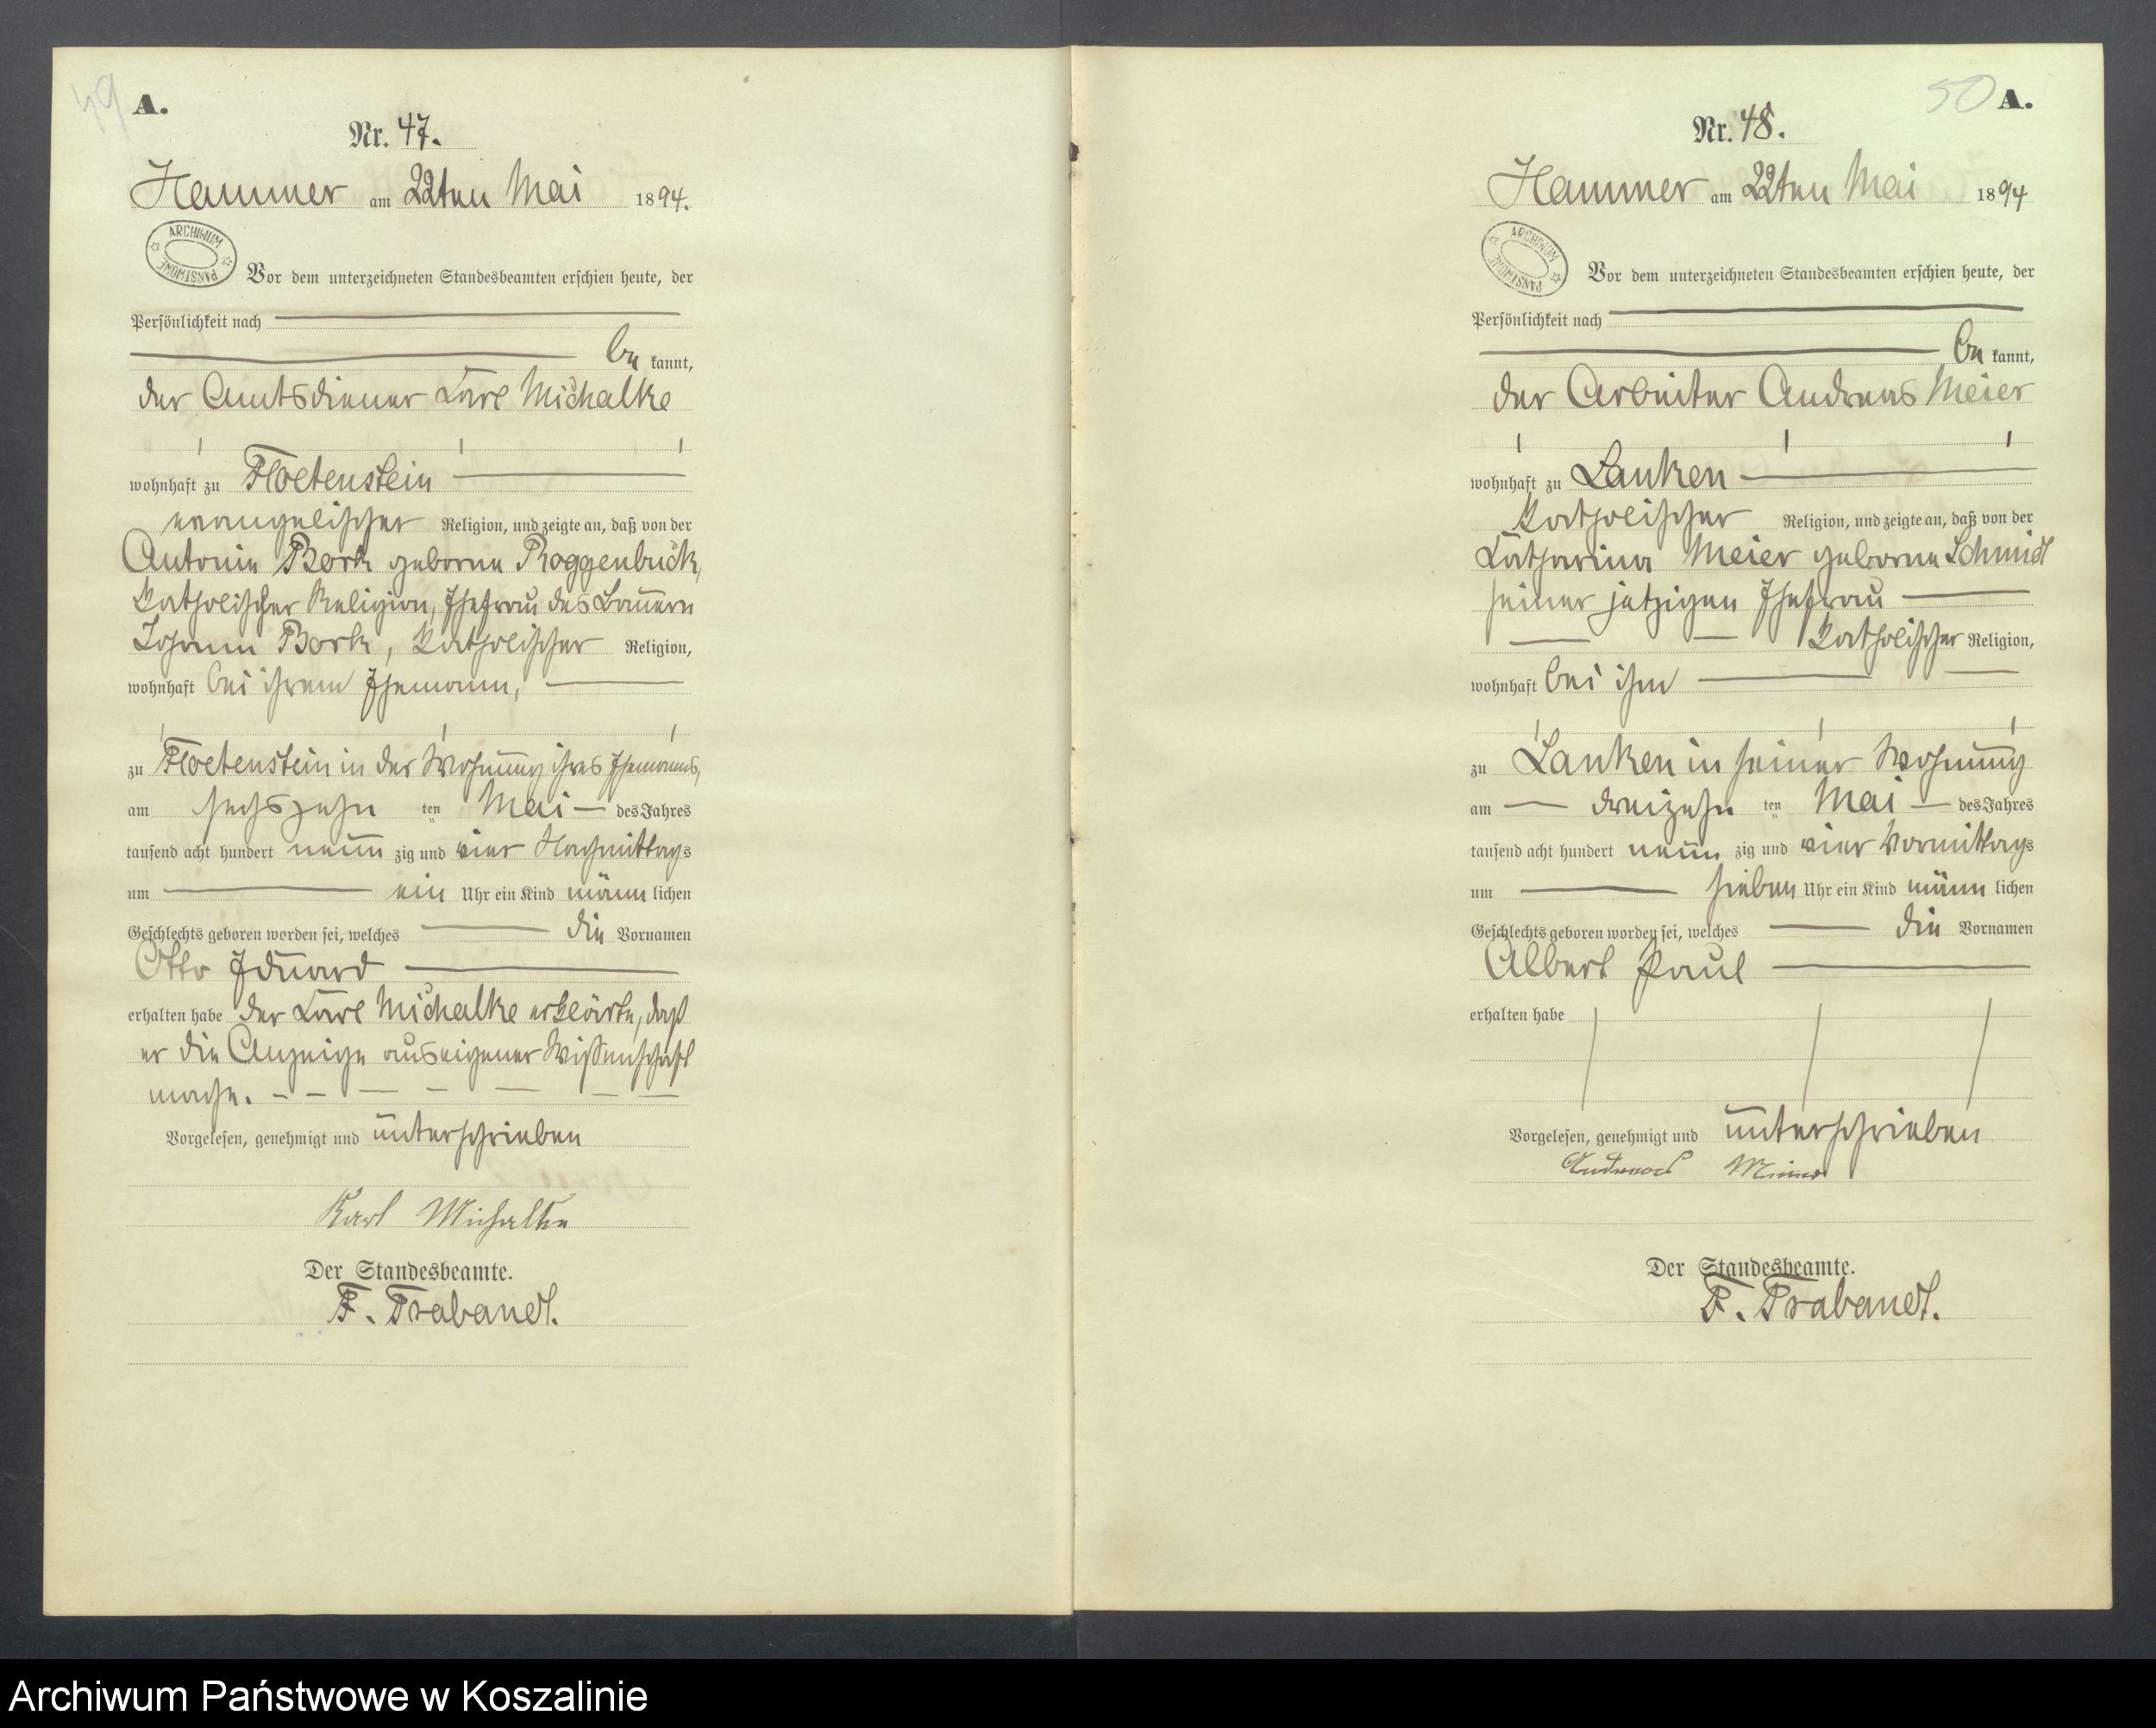 49
A.
Nr. 47.
Hammer am 22ten Mai 1894.
ARCHIWUM PAŃSTWOWE
Vor dem unterzeichneten Standesbeamten erschien heute, der
Persönlichkeit nach
be kannt,
der Amtsdiener Carl Michalke
wohnhaft zu Floetenstein
evangelischer Religion, und zeigte an, daß von der
Antonie Bork geborne Roggenbuck,
katholischer Religion, Ehefrau des Bauern
Johann Bork, katholischer Religion,
wohnhaft bei ihrem Ehemann,
zu Floetenstein in der Wohnung ihres Ehemanns,
am sechszehn ten Mai des Jahres
tausend acht hundert neun zig und vier Nachmittags
um ein Uhr ein Kind männ lichen
Geschlechts geboren worden sei, welches die Vornamen
Otto Eduard
erhalten habe der Carl Michalke erklärte, daß
er die Anzeige aus eigener Wissenschaft
mache.
Vorgelesen, genehmigt und unterschrieben
Karl Michalke
Der Standesbeamte.
F. Trabandt.
50
A.
Nr. 48.
Hammer am 22ten Mai 1894
ARCHIWUM PAŃSTWOWE
Vor dem unterzeichneten Standesbeamten erschien heute, der
Persönlichkeit nach
be kannt,
der Arbeiter Andreas Meier
wohnhaft zu Lanken
katholischer Religion, und zeigte an, daß von der
Catharina Meier geborne Schmidt
seiner jetzigen Ehefrau
katholischer Religion,
wohnhaft bei ihm
zu Lanken in seiner Wohnung
am dreizehn ten Mai des Jahres
tausend acht hundert neun zig und vier Vormittags
um sieben Uhr ein Kind männ lichen
Geschlechts geboren worden sei, welches die Vornamen
Albert Paul
erhalten habe
Vorgelesen, genehmigt und unterschrieben
Andreas Meier
Der Standesbeamte.
F. Trabandt.
Archiwum Państwowe w Koszalinie